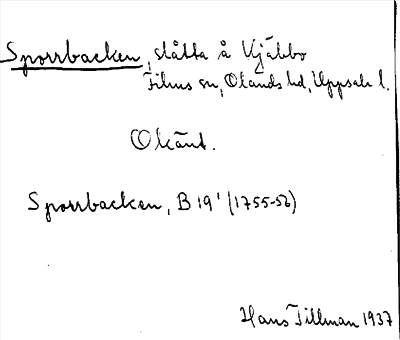 Sporrbacken, slåtta å Vjäbbo
Films sn, Olands hd, Uppsala l.
Okänt.
Sporrbacken, B 19¹ (1755-56)
Hans Tillman 1937